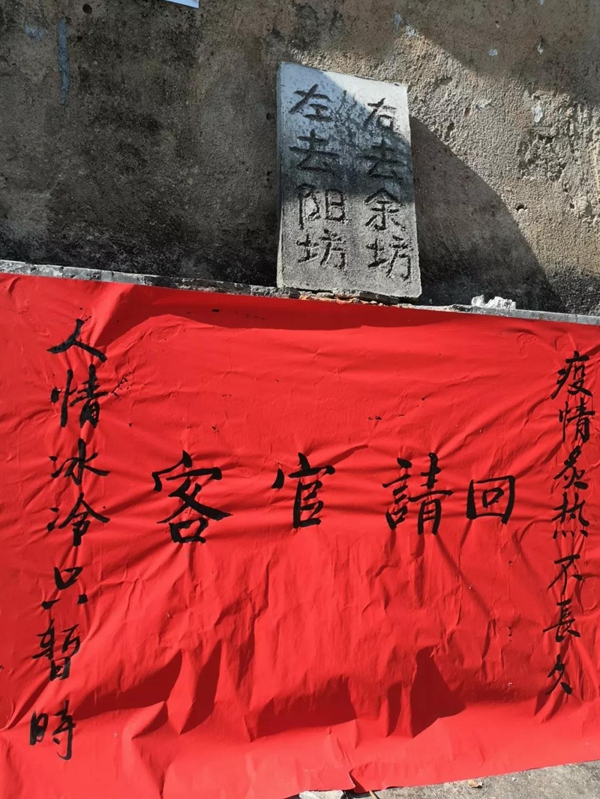 右去余坊
左去阳坊
疫情炙热不長久
客官請回
人情冰冷只暫時